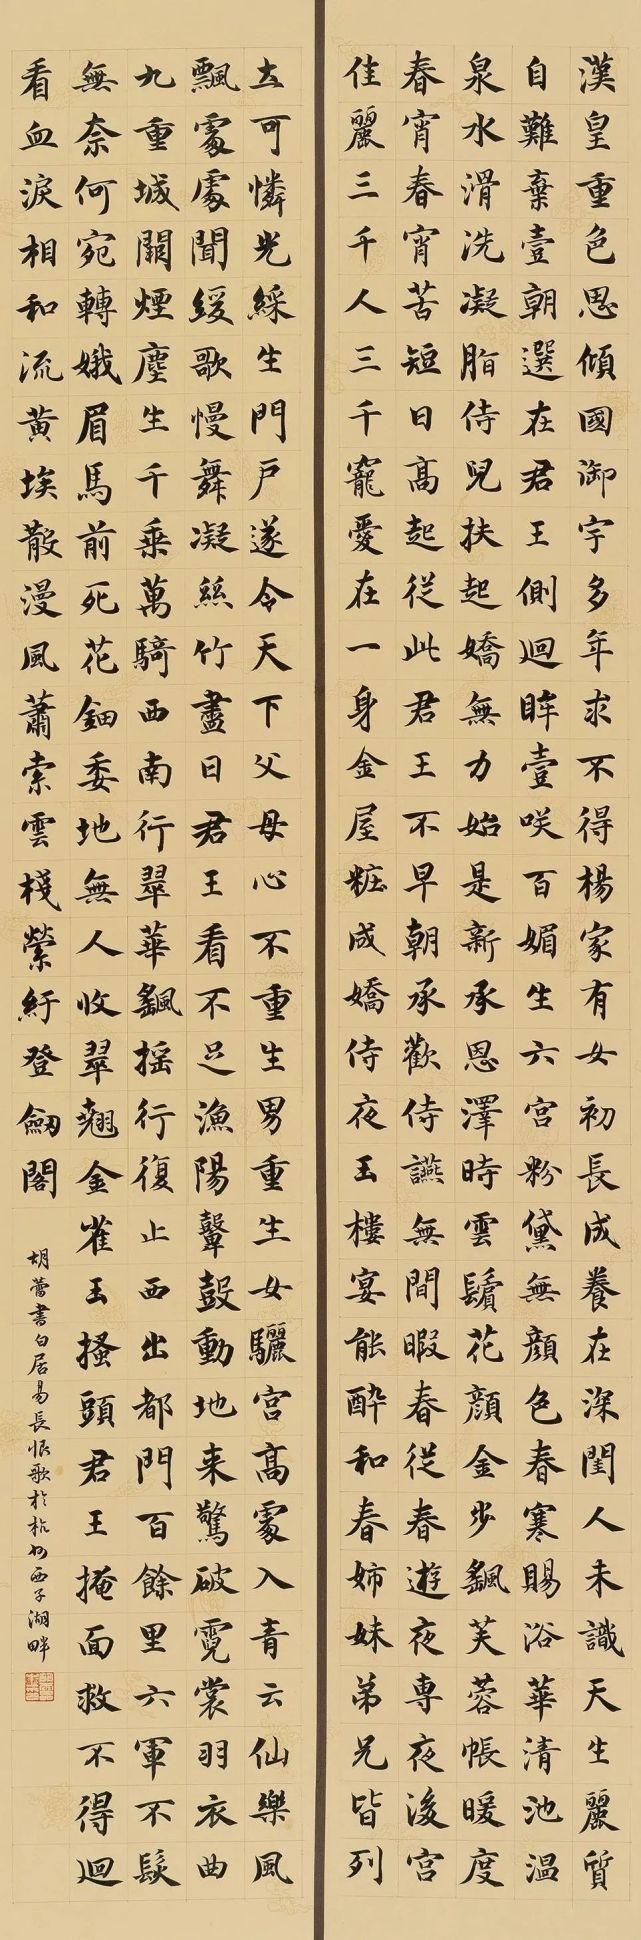 漢皇重色思傾國御宇多年求不得楊家有女初長成養在深閨人未識天生麗質
自難棄壹朝選在君王側迴眸壹咲百媚生六宮粉黛無顏色春寒賜浴華清池温
泉水滑洗凝脂侍兒扶起嬌無力始是新承恩澤時雲鬢花顏金步飖芙蓉帳暖度
春宵春宵苦短日高起從此君王不早朝承歡侍讌無間暇春從春遊夜専夜後宮
佳麗三千人三千寵愛在一身金屋粧成嬌侍夜玉樓宴能酔和春姉妹弟兄皆列
圡可憐光綵生門戶遂令天下父母心不重生男重生女驪宮高處入青云仙樂風
飄處處聞緩歌慢舞凝絲竹盡日君王看不足漁陽鼙鼓動地来驚破霓裳羽衣曲
九重城闕煙塵生千乗萬騎西南行翠華飖揺行復止西出都門百餘里六軍不髮
無奈何宛轉娥眉馬前死花鈿委地無人收翠翹金雀玉搔頭君王掩面救不得迴
看血淚相和流黃埃散漫風蕭索雲棧縈紆登劒閣
胡蕾書白居易長恨歌於杭州西子湖畔